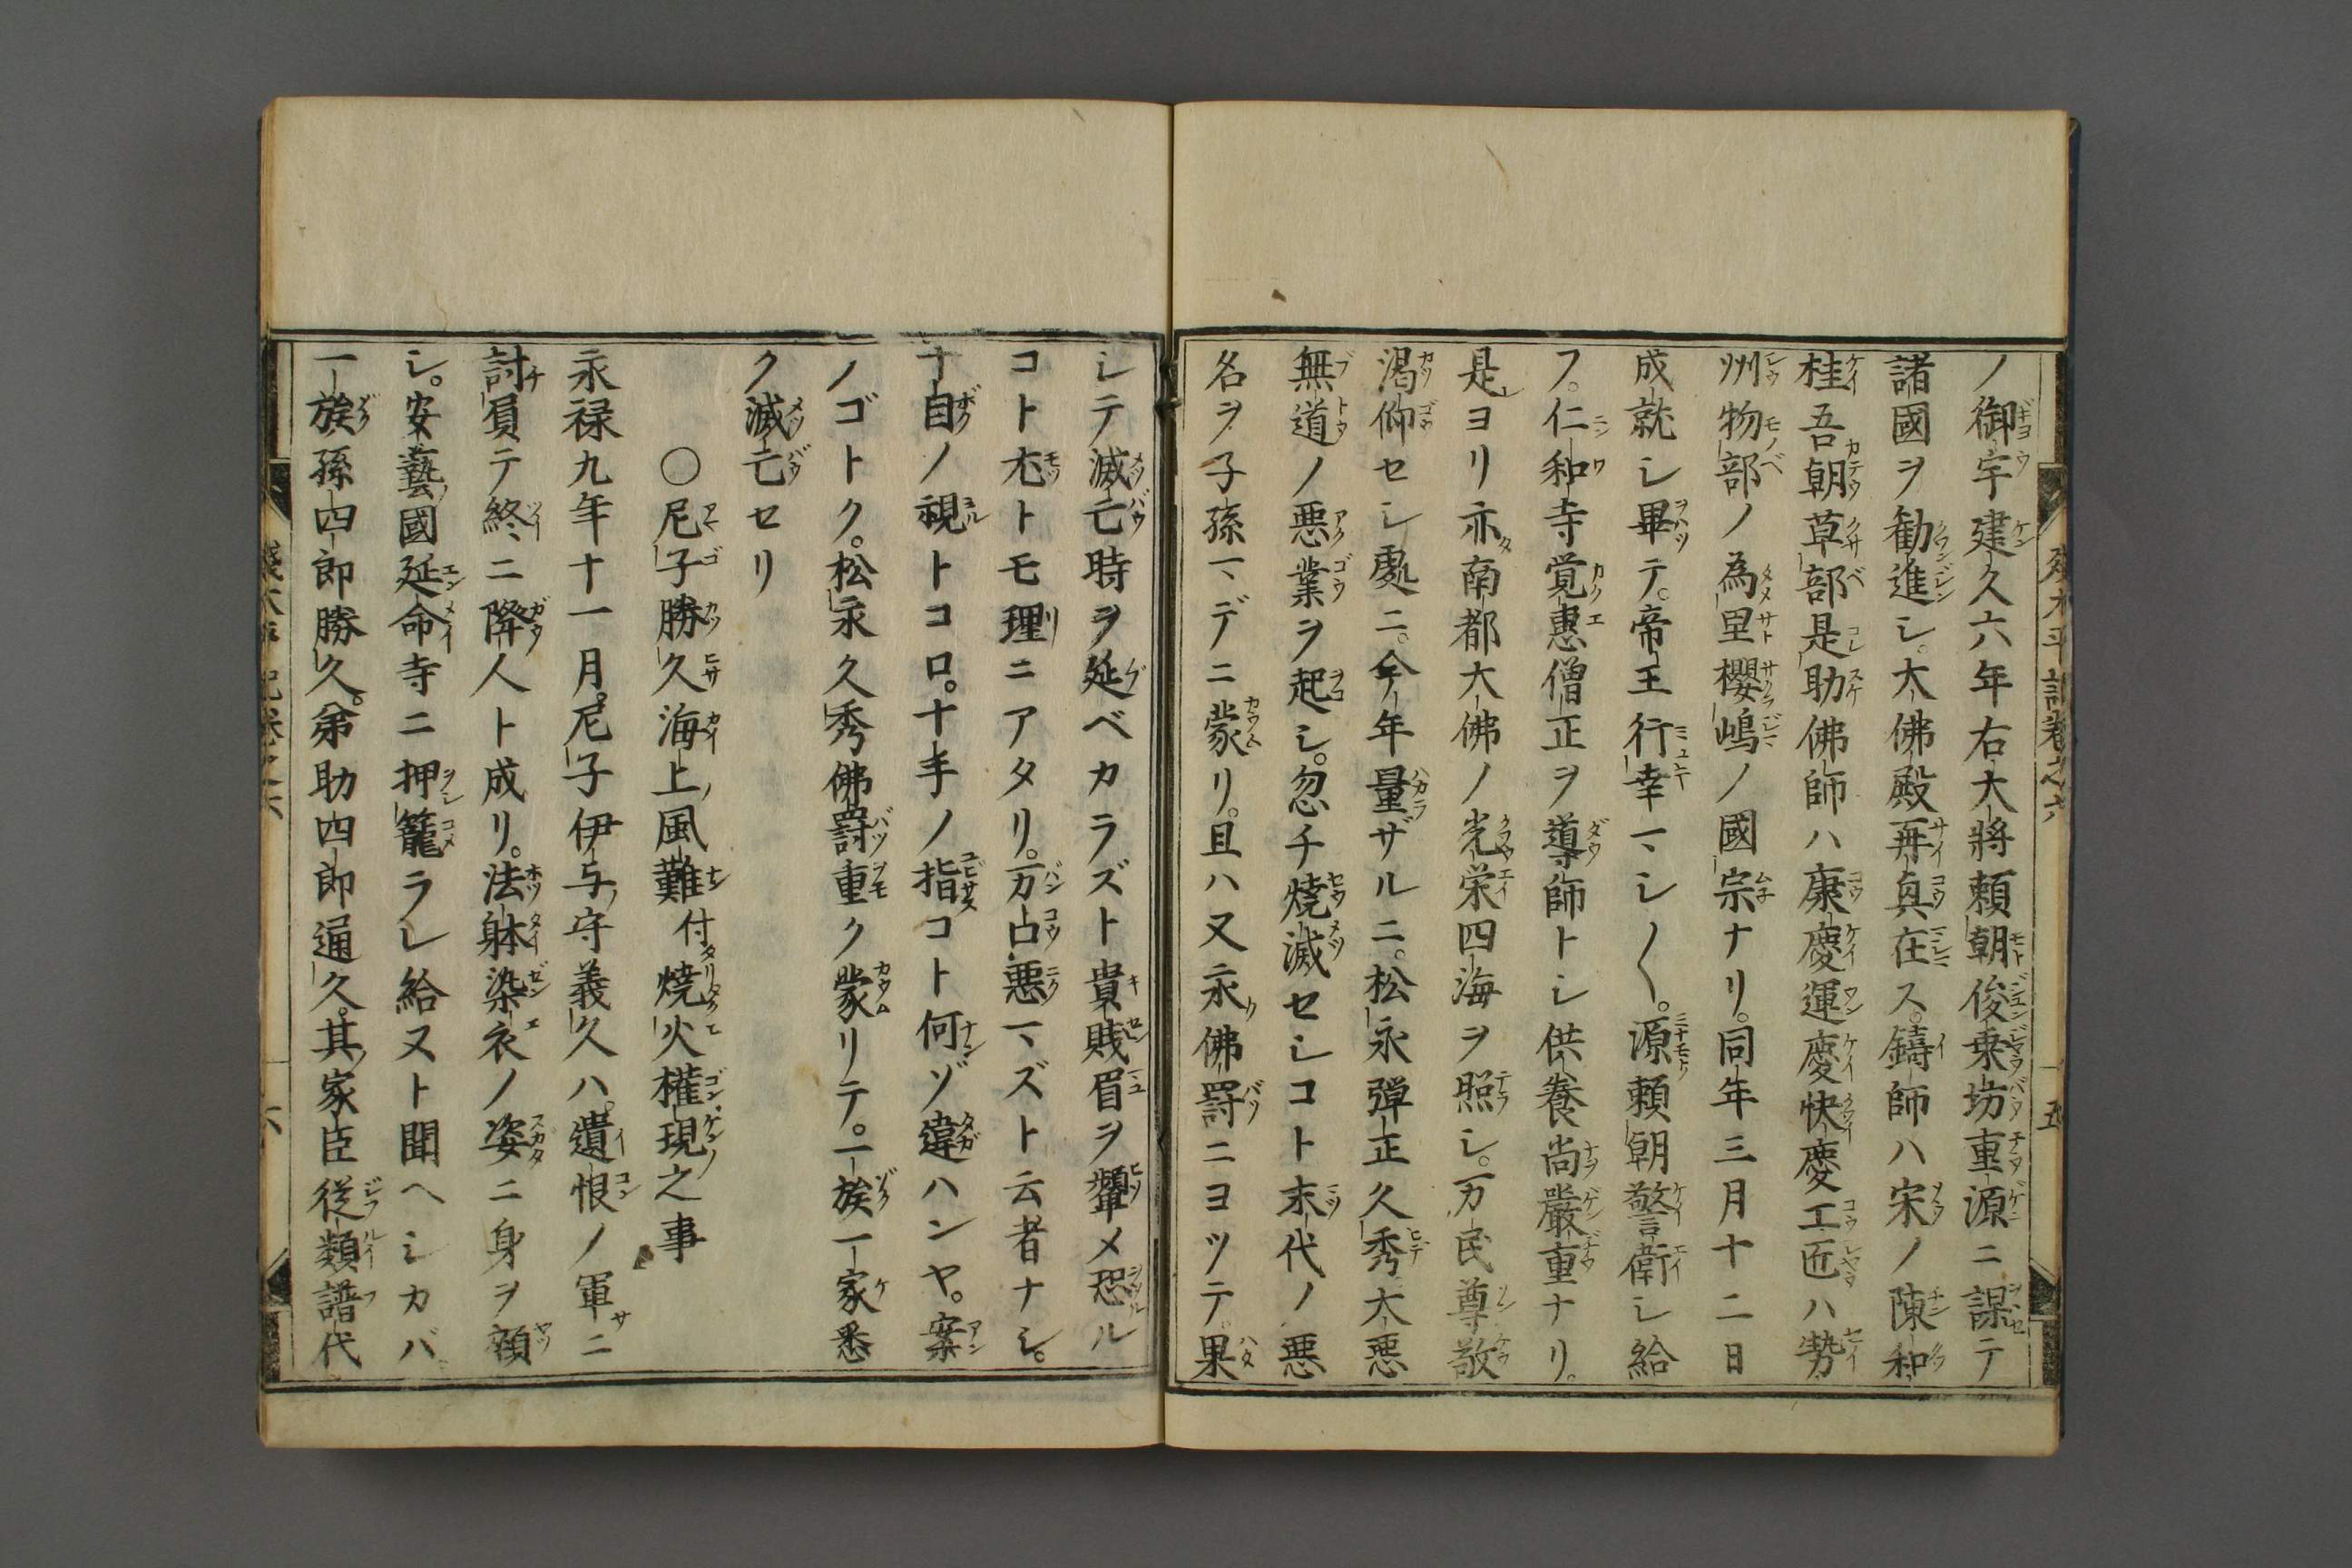 ノ御宇建久六年右大將頼朝俊乗坊重源ニ課テ
諸國ヲ勧進シ。大佛殿再興在ス。鑄師ハ宋ノ陳和
桂吾朝草部是助佛師ハ康慶運慶快慶工匠ハ勢
州物部ノ為里櫻嶋ノ國宗ナリ。同年三月十二日
成就シ畢テ。帝王行幸マシ〱。源頼朝警衛シ給
フ。仁和寺覚惠僧正ヲ導師トシ供養尚嚴重ナリ。
是ヨリ亦南都大佛ノ光栄四海ヲ照シ。万民尊敬
渇仰セシ處ニ。今年量ザルニ。松永彈正久秀大悪
無道ノ悪業ヲ起シ。忽チ焼滅セシコト末代ノ悪
名ヲ子孫マデニ蒙リ。且ハ又永佛罸ニヨツテ。果
シテ滅亡時ヲ延ベカラズト貴賎眉ヲ顰メ恐ル
コト尤トモ理ニアタリ。万口悪マズト云者ナシ。
十目ノ視トコロ。十手ノ指コト何ゾ違ハンヤ。案
ノゴトク。松永久秀佛罸重ク蒙リテ。一族一家悉
ク滅亡セリ
〇尼子勝久海上風難付焼火權現之事
永禄九年十一月。尼子伊与守義久ハ。遺恨ノ軍ニ
討負テ終ニ降人ト成リ。法躰染衣ノ姿ニ身ヲ窶
シ。安藝國延命寺ニ押籠ラレ給ヌト聞ヘシカバ。
一族孫四郎勝久。弟助四郎通久。其家臣従類譜代